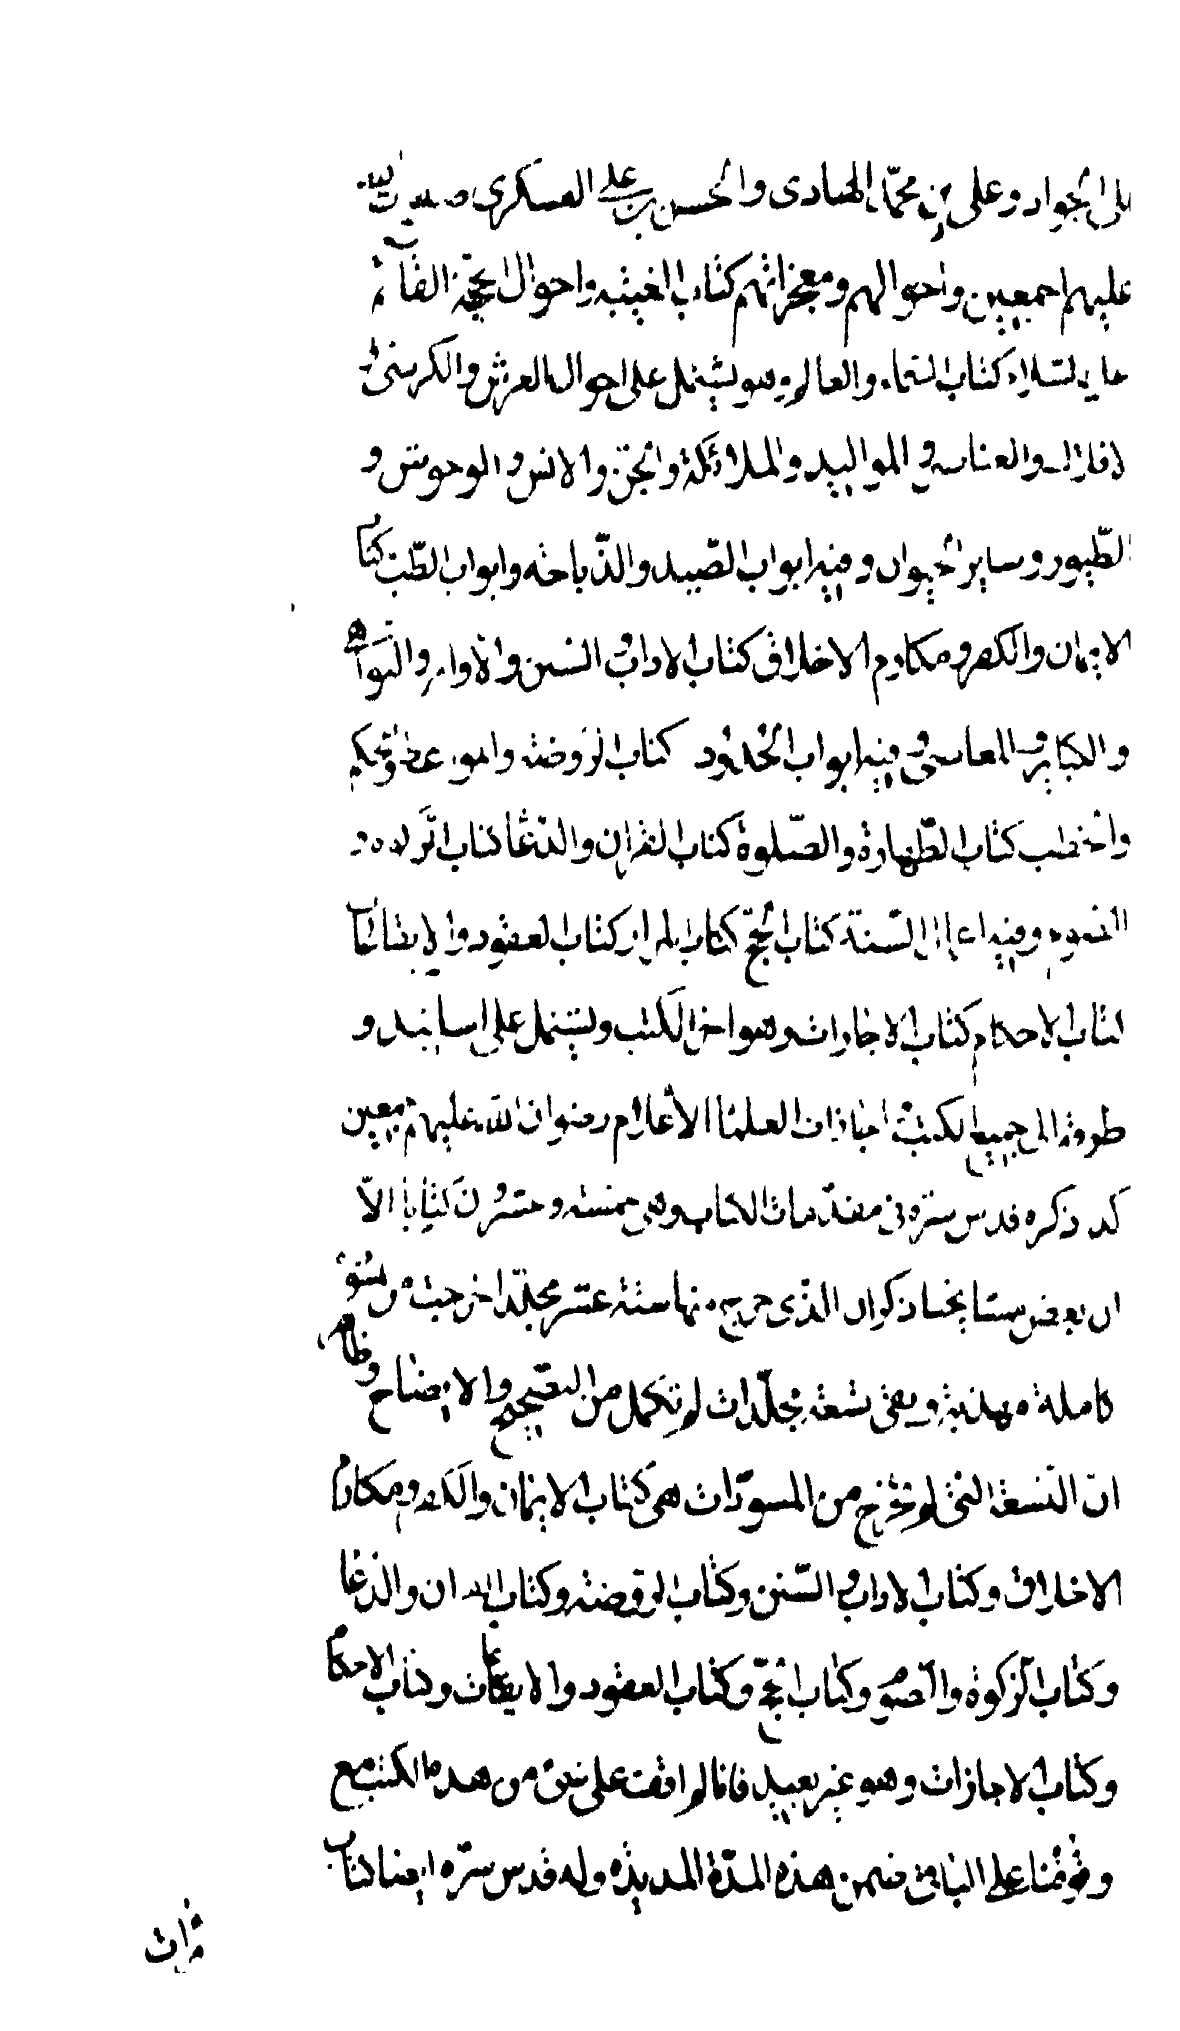 علي الجواد وعلي بن محمّد الهادي والحسن بن علي العسكري صلوات الله
عليهم اجمعين واحوالهم ومعجزاتهم كتاب الغيبه واحوال الحجّة القائم
عليه السلام كتاب السماء والعالم وهو يشتمل على احوال العرش والكرسي و
الافلاك والعناصر و المواليد والملائكة والجن والانس و الوحوش و
الطّيور و ساير الحيوان و فيه ابواب الصّيد والذّباحه وابواب الطّب كتاب
الايمان والكفر و مكارم الاخلاق كتاب الاداب و السنن والاوامر والنواهى
والكباير و المعاصى و فيه ابواب الحدود كتاب الروضة والمواعظ والحكم
والخطب كتاب الطّهارة والصّلوة كتاب القران والدعا كتاب الزكوة و
الصوم وفيه اعمال السّنة كتاب الحجّ كتاب المزار كتاب العقود والايقاعات
كتاب الاحكام كتاب الاجازات وهو اخر الكتب ويشتمل على اسانيد و
طرقه الى جميع الكتب اجازات العلما الاعلام رضوان الله عليهم اجمعين
كذا ذكره قدس سرّه فى مقدّمات الكتاب وهى خمسة و عشرون كتابا الاّ
ان بعض مشايخنا ذكر ان الذى خرج منها ستة عشر مجلّدا خرجت من
كاملة مهذبة وبقى تسعة مجلّدات لم تكمل من التصحيح والايضاح وظاهر
انّ التسعة التى لم تخرج من المسوّدات هى كتاب الايمان والكفر ومكارم
الاخلاق وكتاب الاداب و السّنن وكتاب الروضة وكتاب القران والدعا
وكتاب الزكوة والصوم وكتاب الحجّ وكتاب العقود والايقاعات وكتاب الاحكام
وكتاب الاجازات وهو غير بعيد فانا لم اقف على شئ من هذه الكتب مع
وقوفنا على الباقى فى ضمن هذه المدّة المديدة وله قدس سرّه ايضا كتاب
مرات